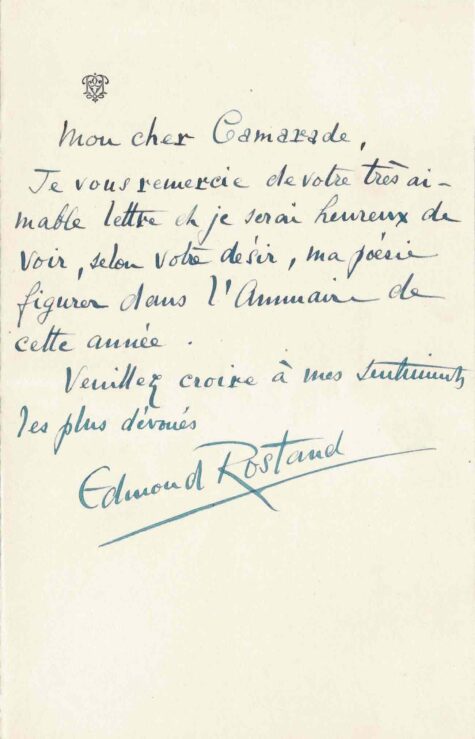 Mon cher Camarade,
Je vous remercie de votre très ai-
mable lettre et je serai heureux de
voir, selon votre désir, ma poésie
figurer dans l'Annuaire de
cette année.
Veuillez croire à mes sentiments
les plus dévoués
Edmond Rostand